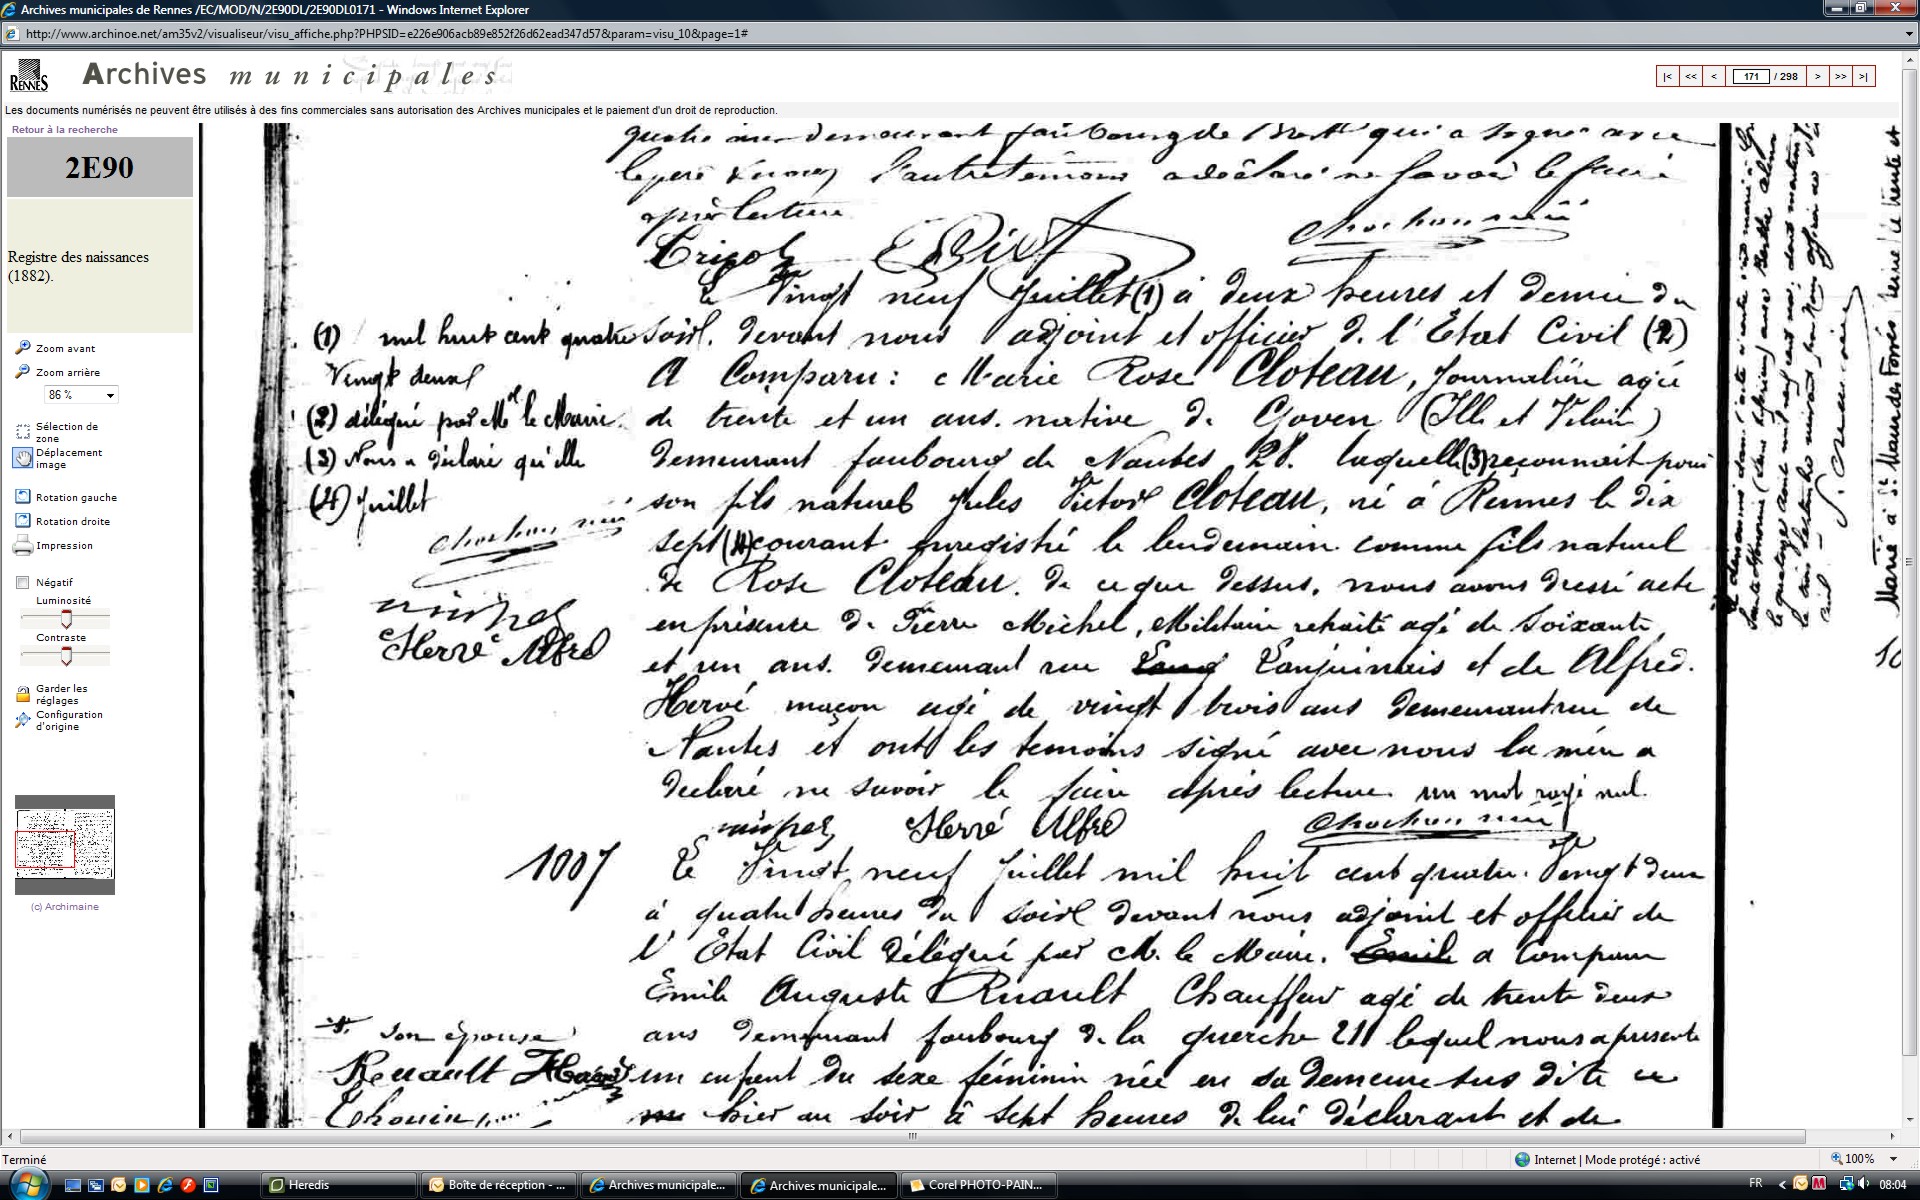 Archives municipales de Rennes /EC/MOD/N/2E90DL/2E90DL0171 - Windows Internet Explorer
http://www.archinoe.net/am35v2/visualiseur/visu_affiche.php?PHPSID=e226e906acb89e852f26d62ead347d57&param=visu_10&page=1#
RENNES
Archives municipales
|< << < 171 / 298 > >> >|
Les documents numérisés ne peuvent être utilisés à des fins commerciales sans autorisation des Archives municipales et le paiement d'un droit de reproduction.
Retour à la recherche
2E90
Registre des naissances
(1882).
Zoom avant
Zoom arrière
86 %
Sélection de
zone
Déplacement
image
Rotation gauche
Rotation droite
Impression
Négatif
Luminosité
Contraste
Garder les
réglages
Configuration
d'origine
(c) Archimaine
quatre ans demeurant faubourg de Brest qui a signé avec
le père et nous l'autre témoin a déclaré ne savoir le faire
après lecture
Le Vingt neuf Juillet (1) à deux heures et demie du
soir. devant nous adjoint et officier de l'Etat Civil (2)
A Comparu : Marie Rose Cloteau, Journalière agée
de trente et un ans. native de Goven (Ille et Vilaine)
demeurant faubourg de Nantes 28. laquelle (3) reconnait pour
son fils naturel Jules Victor Cloteau, né à Rennes le dix
sept (4) courant enregistré le lendemain comme fils naturel
de Rose Cloteau. De ce que dessus, nous avons dressé acte
en présence de Pierre Michel, Militaire retraité agé de soixante
et un ans. demeurant rue Lanjuinais et de Alfred.
Hervé maçon agé de vingt trois ans demeurant rue de
Nantes et ont les temoins signé avec nous la mère a
déclaré ne savoir le faire après lecture un mot rayé nul.
Hervé Alfred
(1) mil huit cent quatre
Vingt deux
(2) délégué par Mr le Maire.
(3) Nous a déclaré qu'elle
(4) Juillet
Hervé Alfred
1007
Le Vingt neuf Juillet mil huit cent quatre. Vingt deux
à quatre heures du soir devant nous adjoint et officier de
l'Etat Civil délégué par M. le Maire. Emile a comparu
Emile Auguste Ruault Chauffeur agé de trente deux
ans demeurant faubourg de la guerche 211 lequel nous a présenté
un enfant du sexe féminin née en sa demeure sus dite
hier au soir à sept heures de lui déclarant et de
son épouse
Terminé
Internet | Mode protégé : activé
100%
Heredis
Boîte de réception - ...
Archives municipale...
Archives municipale...
Corel PHOTO-PAIN...
FR
08:04